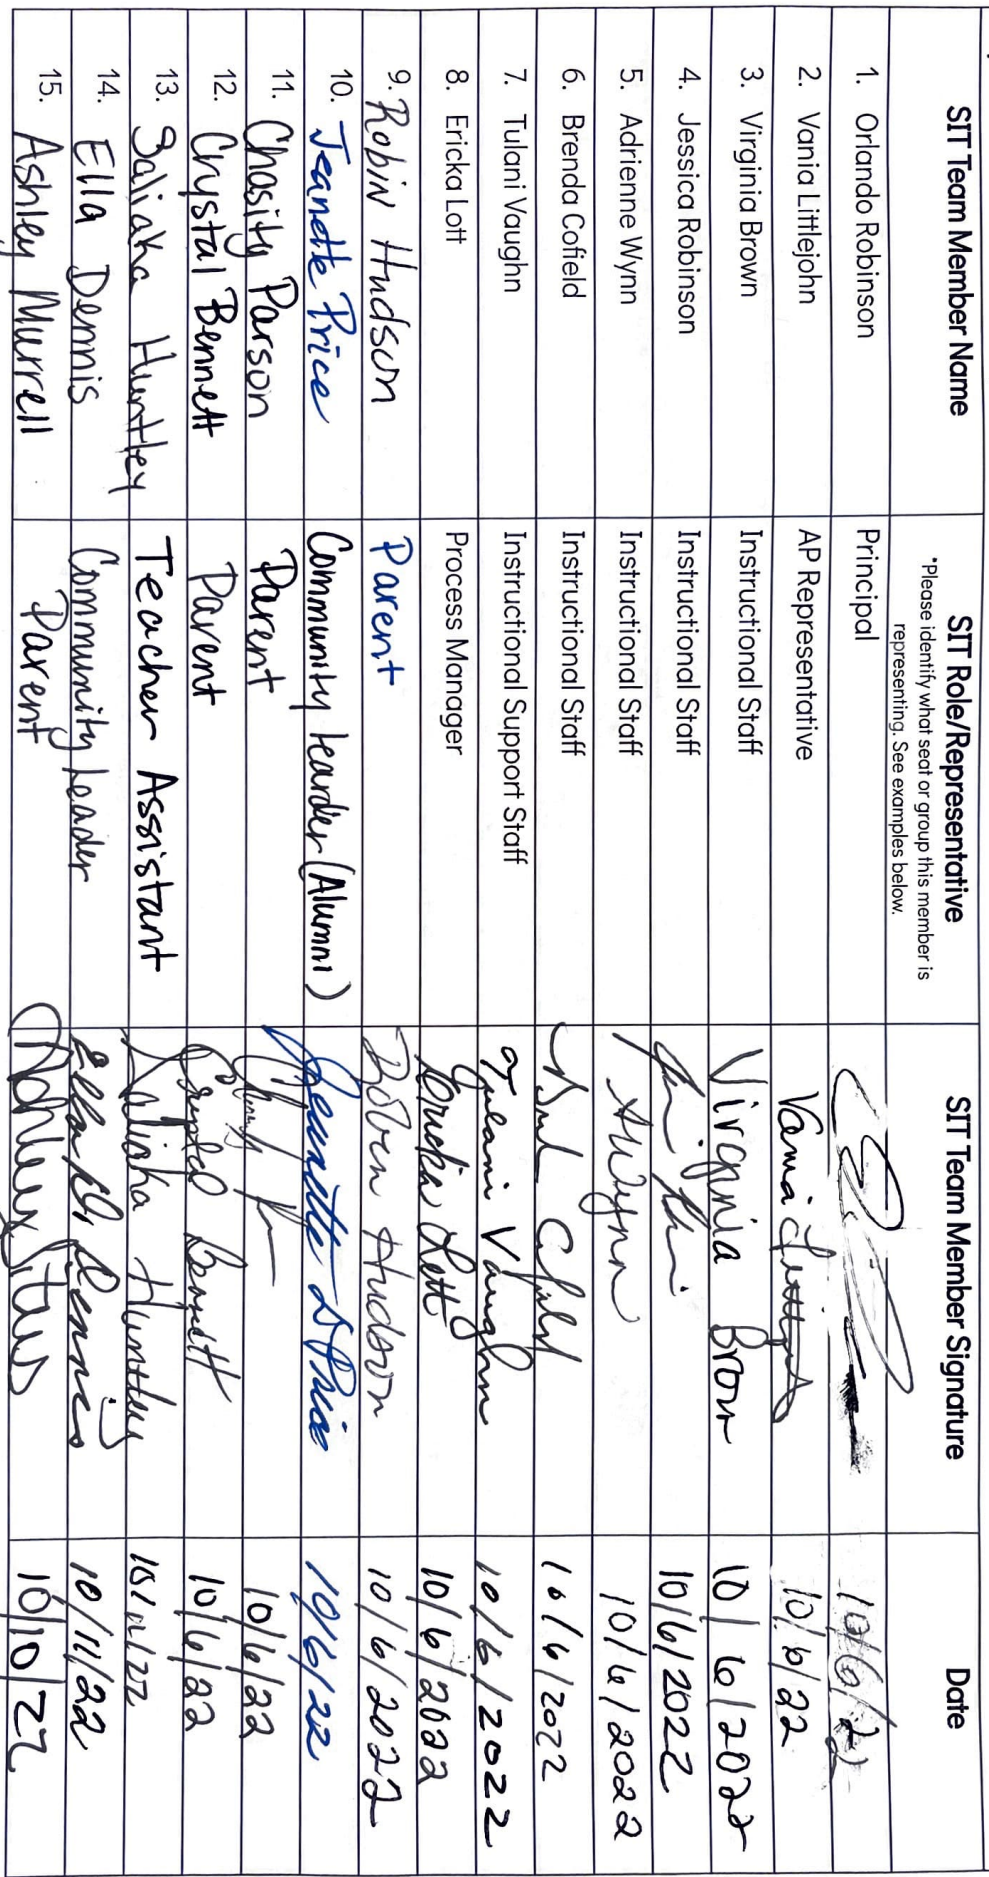 SIT Team Member Name SIT Role/Representative SIT Team Member Signature Date
*Please identify what seat or group this member is
representing. See examples below.
1. Orlando Robinson Principal 10/6/22
2. Vania Littlejohn AP Representative Vania 10/6/22
3. Virginia Brown Instructional Staff Virginia Brown 10/6/2022
4. Jessica Robinson Instructional Staff 10/6/2022
5. Adrienne Wynn Instructional Staff AWynn 10/6/2022
6. Brenda Cofield Instructional Staff 10/6/2022
7. Tulani Vaughn Instructional Support Staff Tulani Vaughn 10/6/2022
8. Ericka Lott Process Manager Ericka Lott 10/6/2022
9. Robin Hudson Parent Robin Hudson 10/6/2022
10. Jeanette Price Community Learder (Alumni) Jeanette D Price 10/6/22
11. Chasity Parson Parent 10/6/22
12. Crystal Bennett Parent Crystal Bennett 10/6/22
13. Saliaha Huntley Teacher Assistant Saliaha Huntley
14. Ella Dennis Community Leader Ella Dennis 10/11/22
15. Ashley Murrell Parent 10/10/22